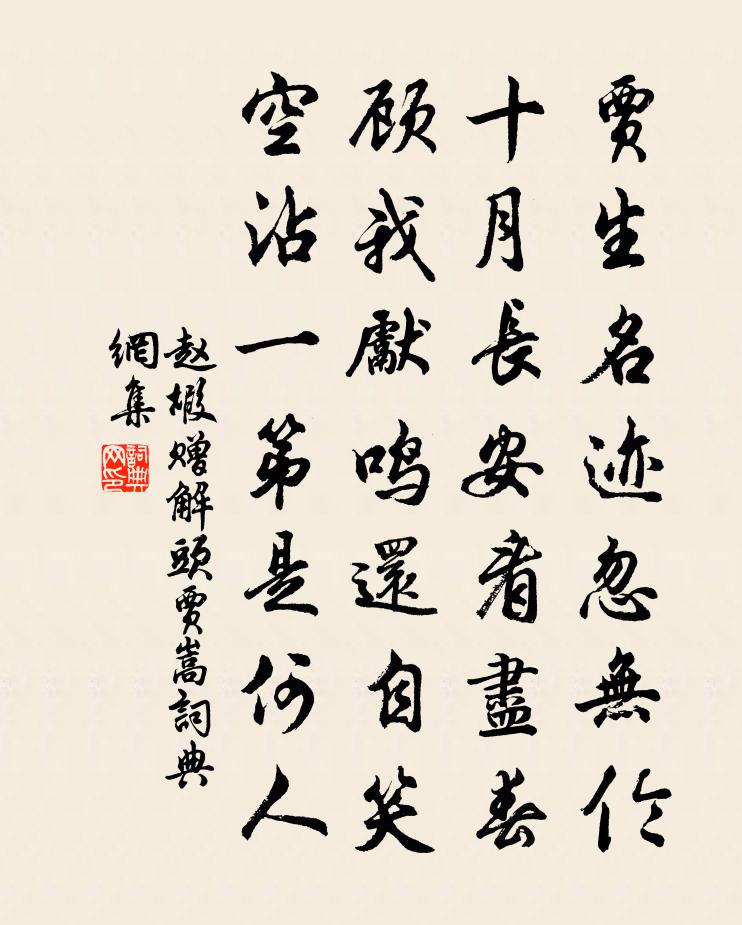 賈生名迹忽無伦
十月長安看盡春
顾我獻鸣還自笑
空沾一第是何人
赵嘏赠解頭賈嵩詞典
網集
詞典
网印